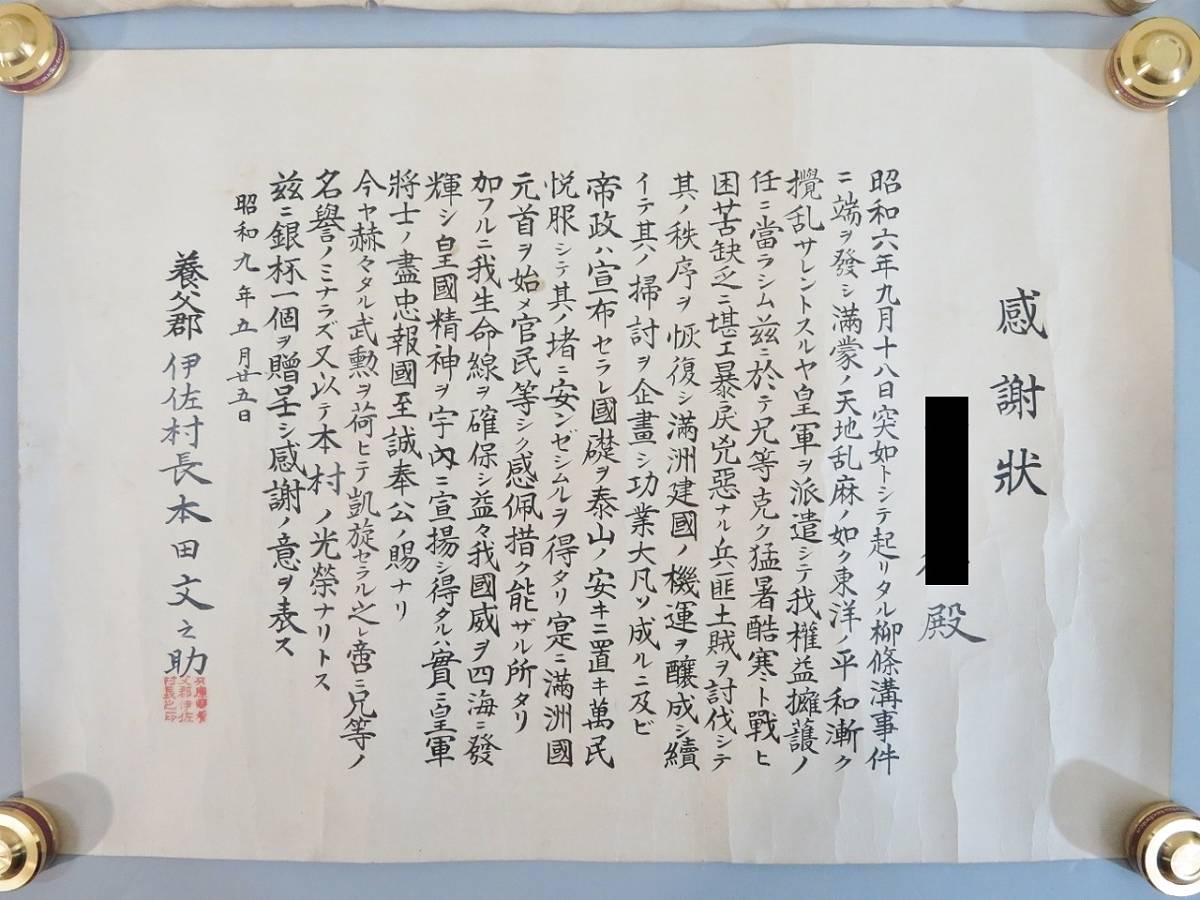 感謝狀
殿
昭和六年九月十八日突如トシテ起リタル柳條溝事件
ニ端ヲ發シ満蒙ノ天地乱麻ノ如ク東洋ノ平和漸ク
攪乱サレントスルヤ皇軍ヲ派遣シテ我權益擁護ノ
任ニ當ラシム茲ニ於テ兄等克ク猛暑酷寒ト戰ヒ
困苦缺乏ニ堪エ暴戻兇惡ナル兵匪土賊ヲ討伐シテ
其ノ秩序ヲ恢復シ満洲建國ノ機運ヲ釀成シ續
イテ其ノ掃討ヲ企畫シ功業大凡ソ成ルニ及ビ
帝政ハ宣布セラレ國礎ヲ泰山ノ安キニ置キ萬民
悦服シテ其ノ堵ニ安ンゼシムルヲ得タリ寔ニ満洲國
元首ヲ始メ官民等シク感佩措ク能ザル所タリ
加フルニ我生命線ヲ確保シ益々我國威ヲ四海ニ發
輝シ皇國精神ヲ宇内ニ宣揚シ得タルハ實ニ皇軍
將士ノ盡忠報國至誠奉公ノ賜ナリ
今ヤ赫々タル武勲ヲ荷ヒテ凱旋セラル之レ啻ニ兄等ノ
名譽ノミナラズ又以テ本村ノ光榮ナリトス
茲ニ銀杯一個ヲ贈呈シ感謝ノ意ヲ表ス
昭和九年五月廿五日
養父郡伊佐村長本田文之助